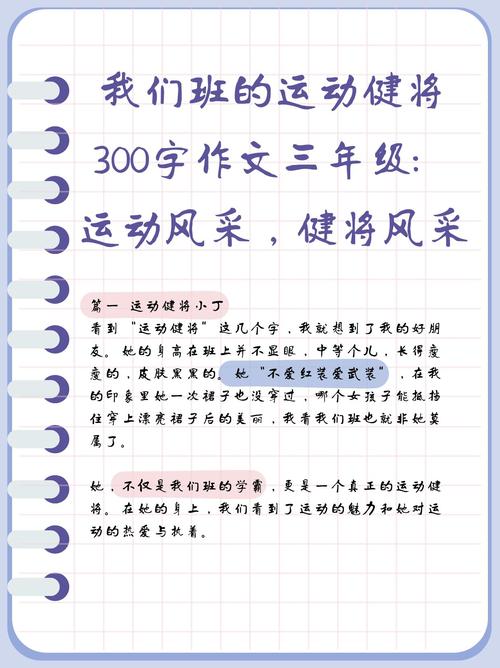 我们班的运动健将
300字作文三年级：
运动风采，健将风采
篇一 运动健将小丁
看到“运动健将”这几个字，我就想到了我的好朋
友。她的身高在班上并不显眼，中等个儿，长得瘦
瘦的，皮肤黑黑的。她“不爱红装爱武装”，在我
的印象里她一次裙子也没穿过，哪个女孩子能抵挡
住穿上漂亮裙子后的美丽，我看我们班也就非她莫
属了。
她，不仅是我们班的学霸，更是一个真正的运动健
将。在她的身上，我们看到了运动的魅力和她对运
动的热爱与执着。